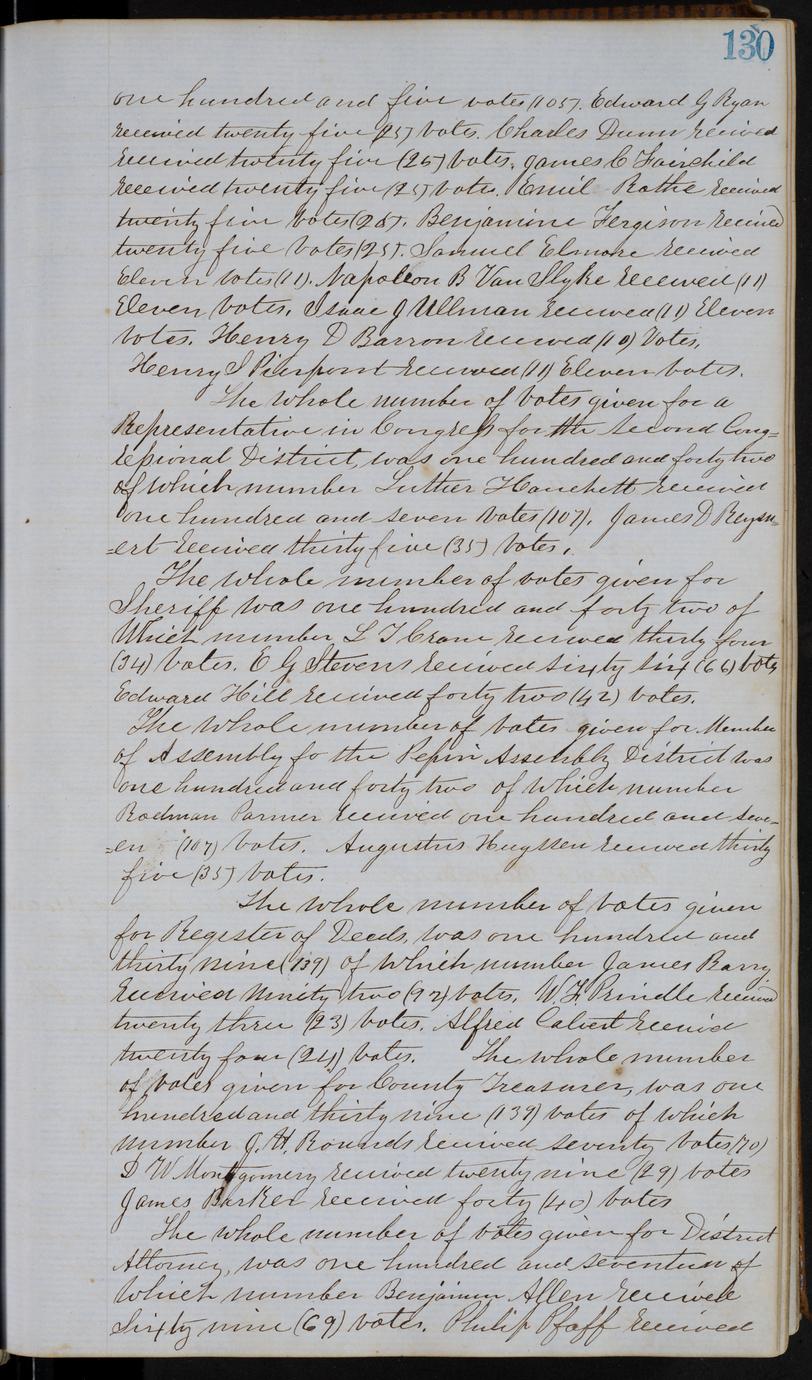 130
one hundred and five votes (105). Edward G Ryan
received twenty five (25) votes. Charles Dunn received
received twenty five (25) votes. James C Fairchild
received twenty five (25) votes. Emil Rothe received
twenty five votes (25). Benjamine Fergison received
twenty five votes (25). Samuel Elmore received
Eleven votes (11). Napoleon B Van Slyke received (11)
Eleven votes. Isaac J Ullman received (11) Eleven
votes. Henry D Barron received (10) Votes.
Henry S Pierpont received (11) Eleven votes.
The whole number of votes given for a
Representative in Congress for the second Cong=
ressional District, was one hundred and forty two
of which number Luther Hanchett received
one hundred and seven votes (107). James D Reym=
=ert received thirty five (35) votes.
The whole number of votes given for
Sheriff was one hundred and forty two of
Which number L T Crane received thirty four
(34) votes. E G Stevens received sixty six (66) vots
Edward Hill received forty two (42) votes.
The whole number of votes given for Member
of Assembly fo the Pepin Assembly District was
one hundred and forty two of which number
Rodman Parmer received one hundred and sev=
=en (107) votes. Augustus Huyssen received thirty
five (35) votes.
The whole number of votes given
for Register of Deeds, was one hundred and
thirty nine (139) of which number James Barry
received ninity two (92) votes. W. F. Prindle received
twenty three (23) votes. Alfred Calvert received
twenty four (24) votes. The whole number
of votes given for County Treasurer, was one
hundred and thirty nine (139) votes of which
number J. H. Rounds received seventy votes (70)
D W Montgomery received twenty nine (29) votes
James Barker received forty (40) votes
The whole number of votes given for District
Attorney, was one hundred and seventeen of
which number Benjamin Allen received
sixty nine (69) votes. Philip Pfaff received